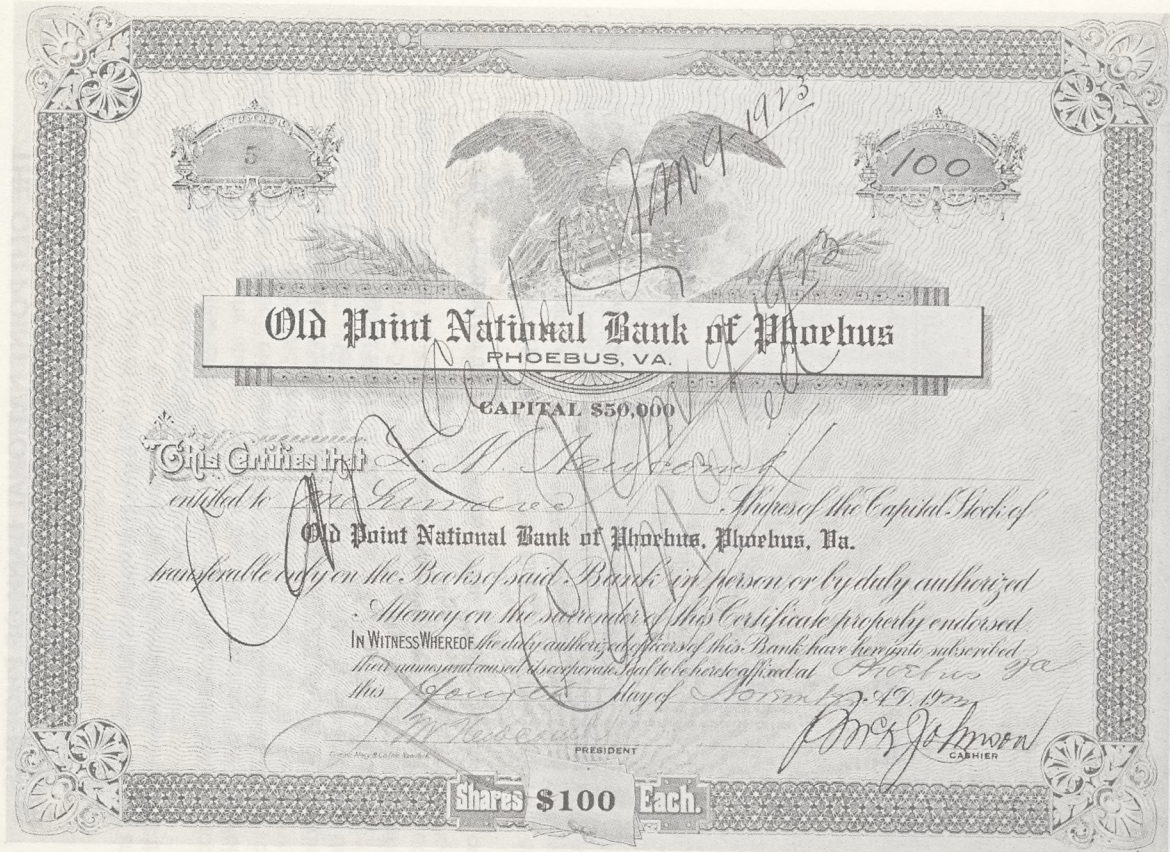 5
100
Old Point National Bank of Phoebus
PHOEBUS, VA.
CAPITAL $50,000
Cancelled Jan. 9 1923
This Certifies that L. M. Newcomb
entitled to One Hundred Shares of the Capital Stock of
Old Point National Bank of Phoebus, Phoebus, Va.
transferable only on the Books of said Bank in person or by duly authorized
Attorney on the surrender of this Certificate properly endorsed.
IN WITNESS WHEREOF the duly authorized officers of this Bank have hereunto subscribed
their names and caused its corporate Seal to be hereto affixed at Phoebus Va
this Fourth day of A.D.
Newcomb
Johnson
PRESIDENT
CASHIER
Shares $100 Each.